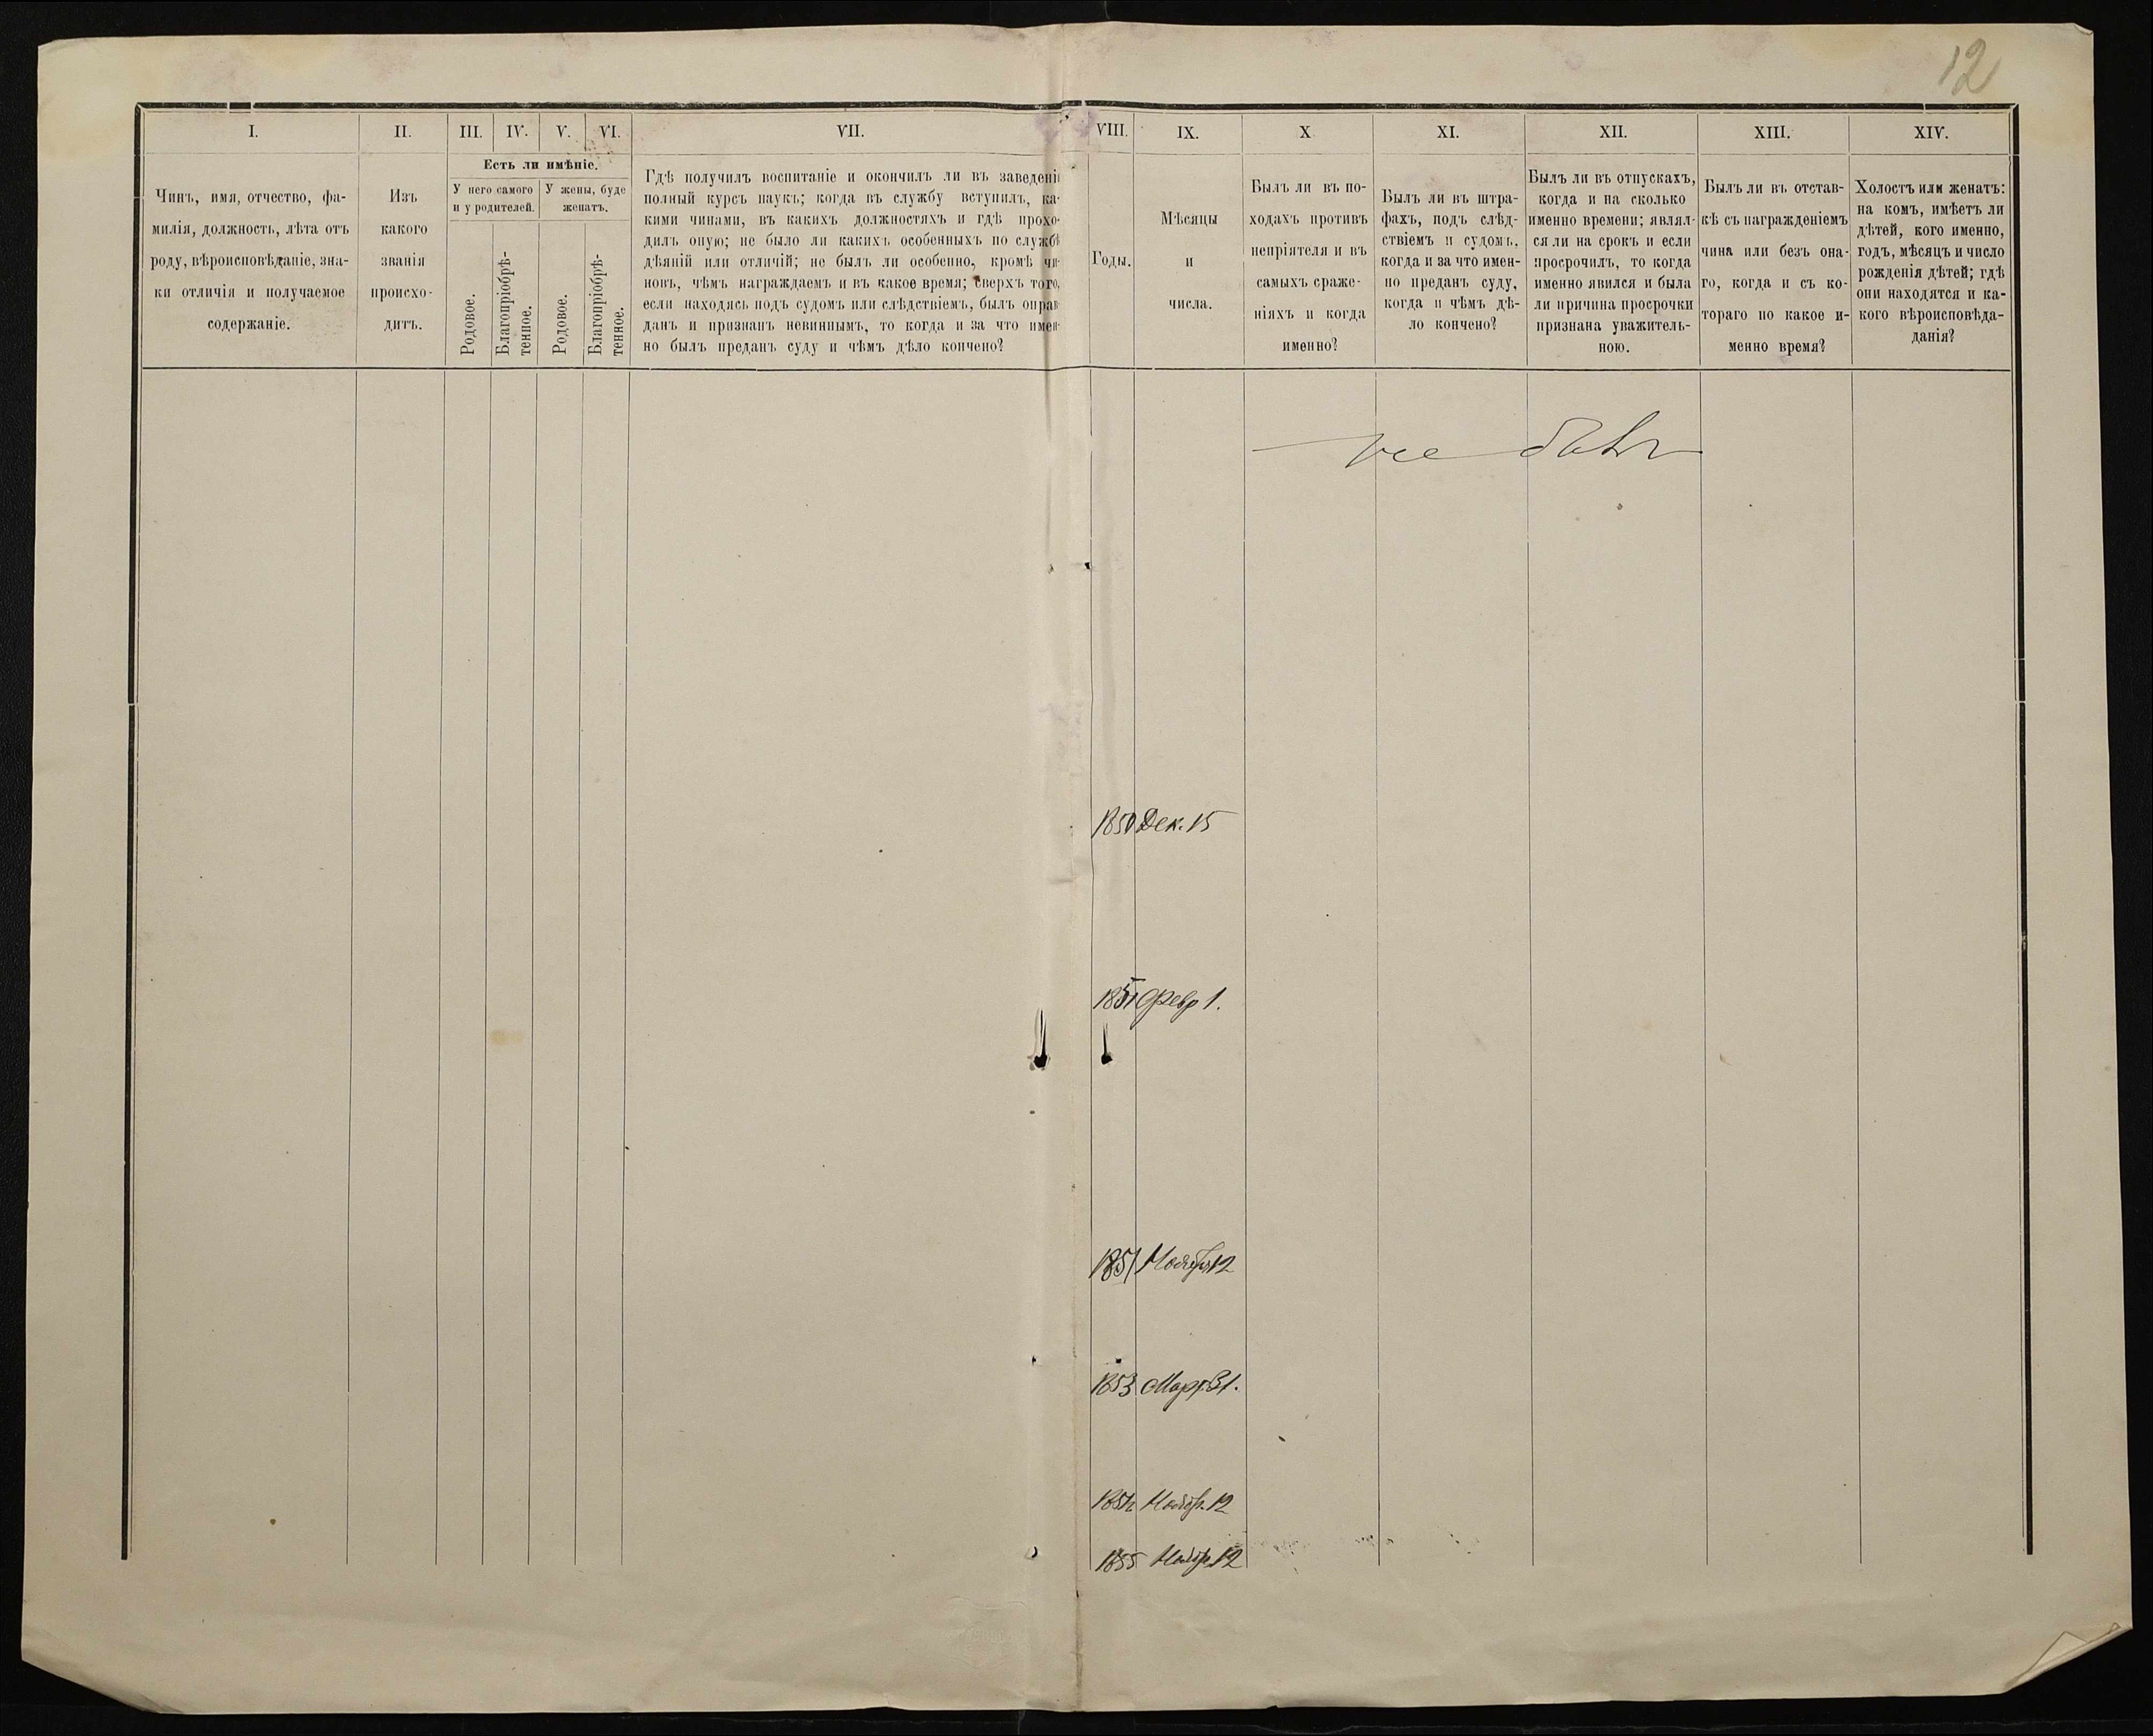 12
I.
II.
III.
IV.
V.
VI.
VII.
VIII.
IX.
X
XI.
XII.
XIII.
XIV.
Чинъ, имя, отчество, фа-
милія, должность, лѣта отъ
роду, вѣроисповѣданіе, зна-
ки отличія и получаемое
содержаніе.
Изъ
какого
званія
происхо-
дитъ.
Есть ли имѣніе.
У него самого
и у родителей.
У жены, буде
женатъ.
Родовое.
Благопріобрѣ-
тенное.
Родовое.
Благопріобрѣ-
тенное.
Гдѣ получилъ воспитаніе и окончилъ ли въ заведені
полный курсъ наукъ; когда въ службу вступилъ, ка-
кими чинами, въ какихъ должностяхъ и гдѣ прохо-
дилъ оную; не было ли какихъ особенныхъ по службѣ
дѣяній или отличій; не былъ ли особенно, кромѣ чи-
новъ, чѣмъ награждаемъ и въ какое время; сверхъ того,
если находясь подъ судомъ или слѣдствіемъ, былъ оправ-
данъ и признанъ невиннымъ, то когда и за что имен-
но былъ преданъ суду и чѣмъ дѣло кончено?
Годы.
Мѣсяцы
и
числа.
Былъ ли въ по-
ходахъ противъ
непріятеля и въ
самыхъ сраже-
ніяхъ и когда
именно?
Былъ ли въ штра-
фахъ, подъ слѣд-
ствіемъ и судомъ,
когда и за что имен-
но преданъ суду,
когда и чѣмъ дѣ-
ло кончено?
Былъ ли въ отпускахъ,
когда и на сколько
именно времени; являл-
ся ли на срокъ и если
просрочилъ, то когда
именно явился и была
ли причина просрочки
признана уважитель-
ною.
Былъ ли въ отстав-
кѣ съ награжденіемъ
чина или безъ она-
го, когда и съ ко-
тораго по какое и-
менно время?
Холостъ или женатъ:
на комъ, имѣетъ ли
дѣтей, кого именно,
годъ, мѣсяцъ и число
рожденія дѣтей; гдѣ
они находятся и ка-
кого вѣроисповѣда-
данія?
не былъ
1850 Дек. 15
1851 Февр 1.
1851 Ноября 12
1853 Март. 31.
1854 Ноябр. 12
1855 Ноябр. 12